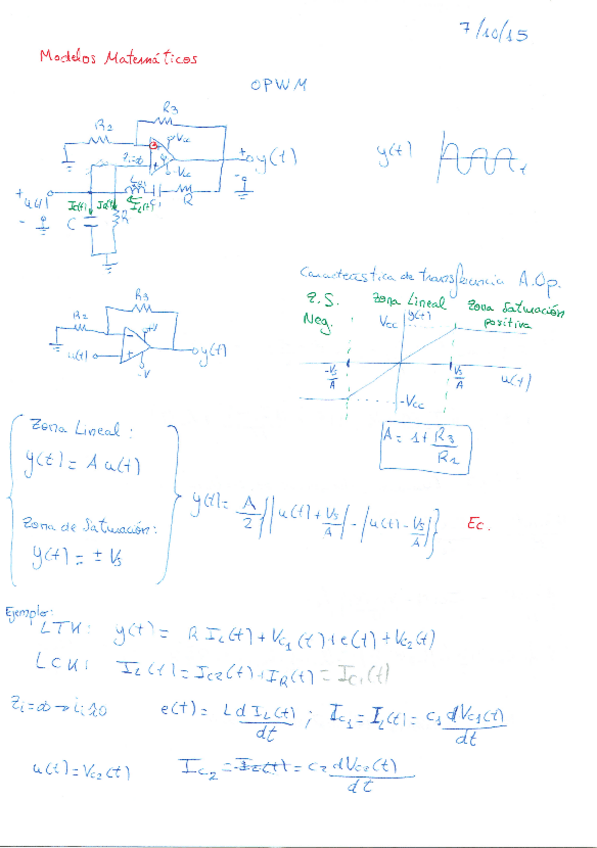 7/10/15
Modelos Matemáticos
OPWM
R3
R2
Vcc
Zi=∞
y(t)
-Vcc
+
u(t)
-
Ic(t)
IL(t)
C
R
R
y(t)
t
Característica de transferencia A.Op.
Z.S. Neg.
Zona Lineal
Zona Saturación positiva
Vcc
y(t)
-Vs/A
Vs/A
u(t)
-Vcc
A = 1 + R3/R2
R3
R2
+V
u(t)
-V
y(t)
Zona Lineal:
y(t) = A u(t)
Zona de Saturación:
y(t) = ± Vs
y(t) = A/2 { |u(t) + Vs/A| - |u(t) - Vs/A| } Ec.
Ejemplo:
LTK: y(t) = R IL(t) + Vc1(t) + e(t) + Vc2(t)
LCK: IL(t) = Ic2(t) + IR(t) = Ic1(t)
Zi=∞ → ii≈0 e(t) = L dIL(t)/dt ; Ic1 = IL(t) = C1 dVc1(t)/dt
u(t) = Vc2(t) Ic2 = C2 dVc2(t)/dt